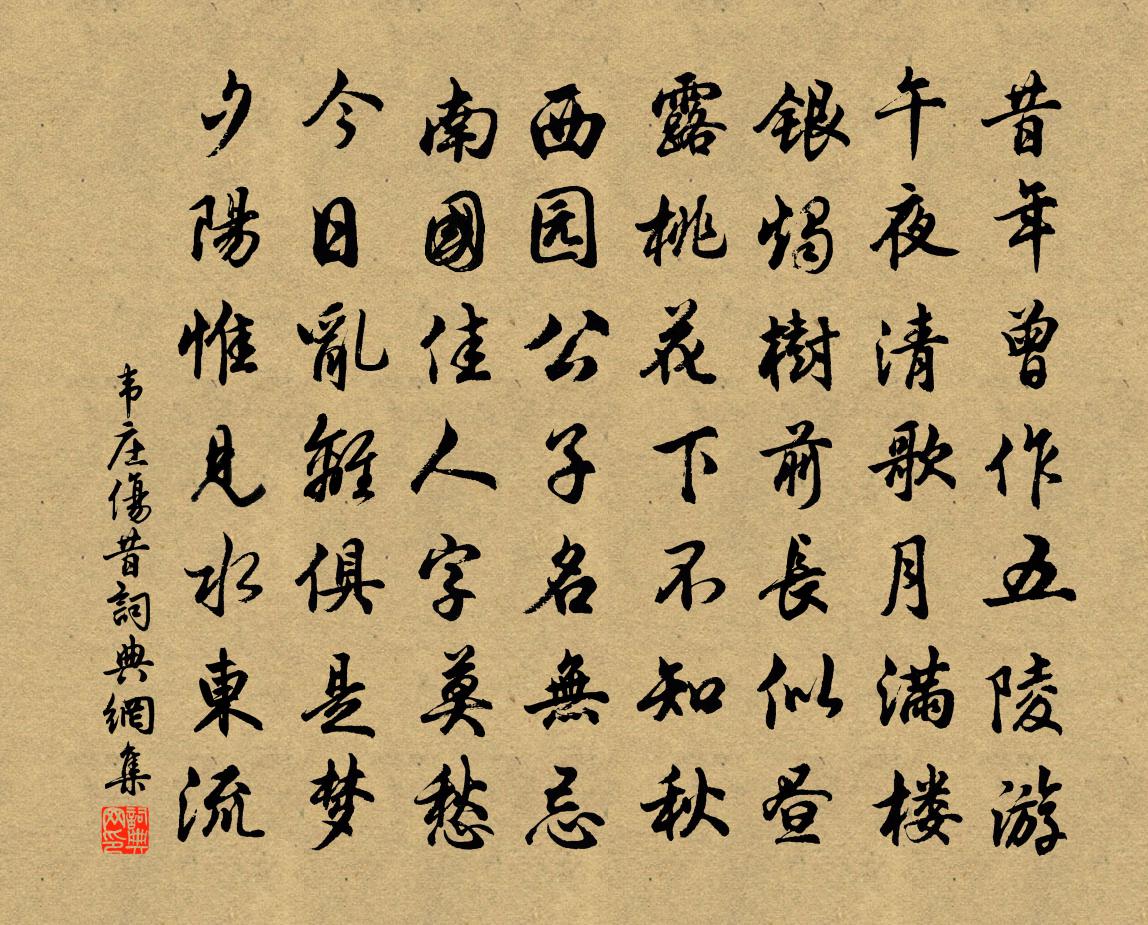 昔年曾作五陵游
午夜清歌月满楼
银烛樹前長似昼
露桃花下不知秋
西园公子名無忌
南國佳人字莫愁
今日亂離俱是梦
夕陽惟見水東流
韦庄傷昔詞典網集
詞典网印